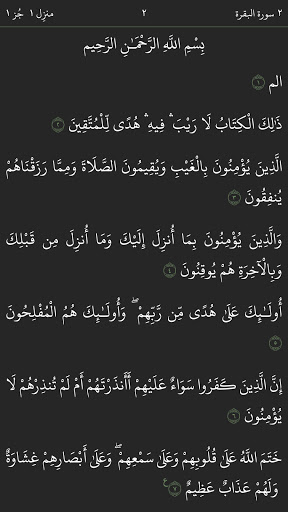 ٢ سورة البقرة ٢ منزل ١ جُز ١
بِسْمِ اللَّهِ الرَّحْمَـٰنِ الرَّحِيمِ
الم
١
ذَٰلِكَ الْكِتَابُ لَا رَيْبَ ۛ فِيهِ ۛ هُدًى لِّلْمُتَّقِينَ ٢
الَّذِينَ يُؤْمِنُونَ بِالْغَيْبِ وَيُقِيمُونَ الصَّلَاةَ وَمِمَّا رَزَقْنَاهُمْ
يُنفِقُونَ ٣
وَالَّذِينَ يُؤْمِنُونَ بِمَا أُنزِلَ إِلَيْكَ وَمَا أُنزِلَ مِن قَبْلِكَ
وَبِالْآخِرَةِ هُمْ يُوقِنُونَ ٤
أُولَـٰئِكَ عَلَىٰ هُدًى مِّن رَّبِّهِمْ ۖ وَأُولَـٰئِكَ هُمُ الْمُفْلِحُونَ
٥
إِنَّ الَّذِينَ كَفَرُوا سَوَاءٌ عَلَيْهِمْ أَأَنذَرْتَهُمْ أَمْ لَمْ تُنذِرْهُمْ لَا
يُؤْمِنُونَ ٦
خَتَمَ اللَّهُ عَلَىٰ قُلُوبِهِمْ وَعَلَىٰ سَمْعِهِمْ ۖ وَعَلَىٰ أَبْصَارِهِمْ غِشَاوَةٌ ۖ
وَلَهُمْ عَذَابٌ عَظِيمٌ ٧ ع